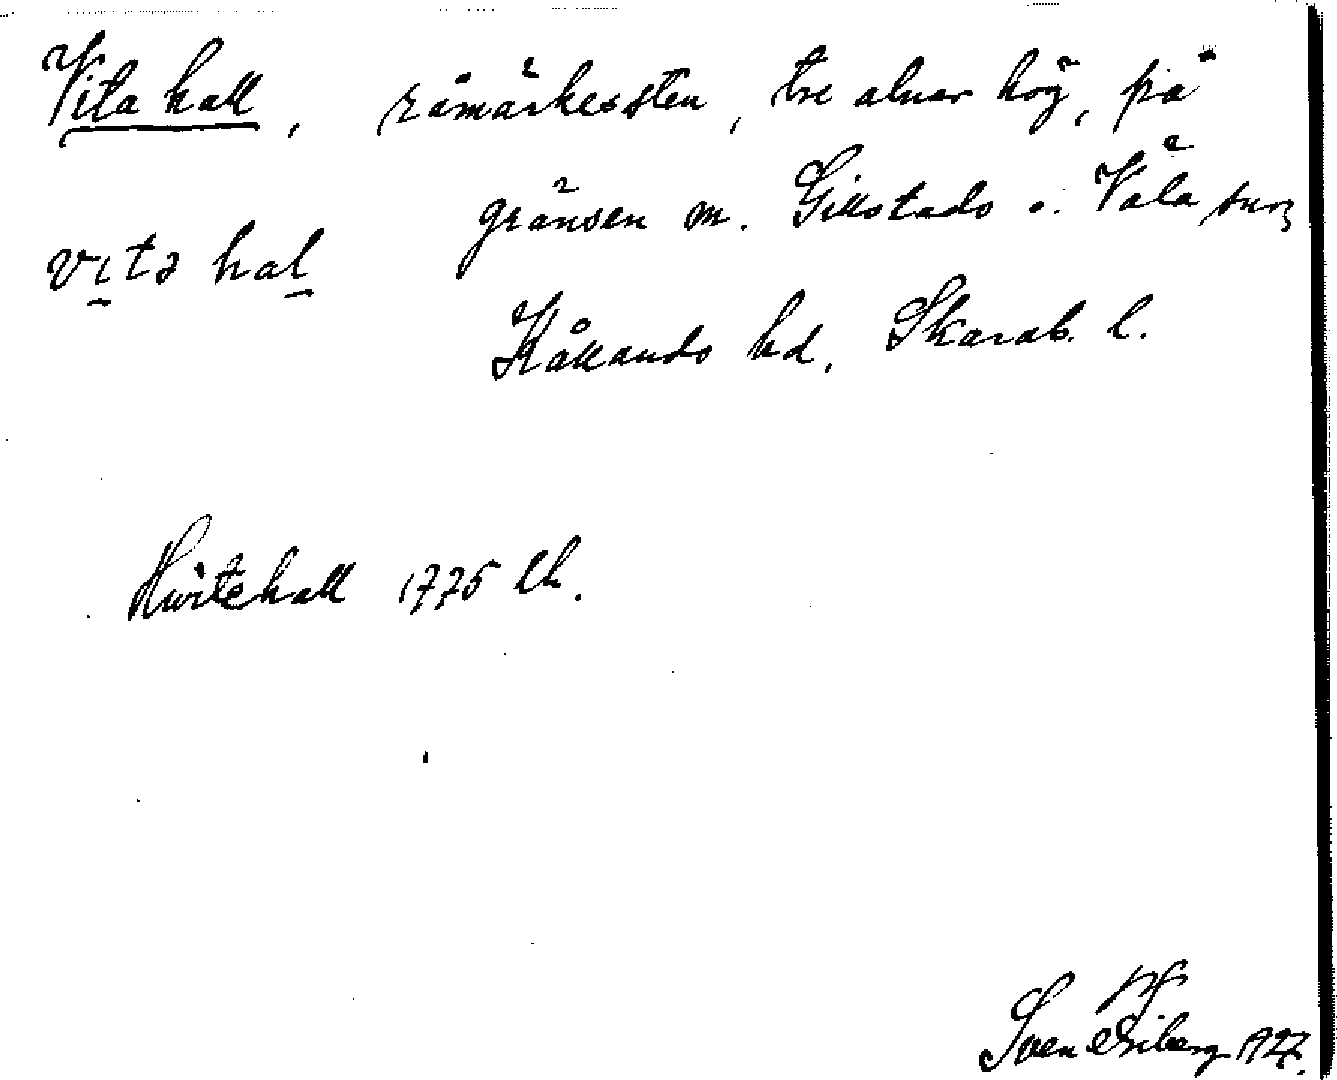 Vita hall, råmärkessten, tre alnar hög, på
gränsen m. Gillstads o. Våla snr,
vitə hal
Kållands hd, Skarab. l.
Hwitehall 1775 lh.
Sven Friberg 1927.